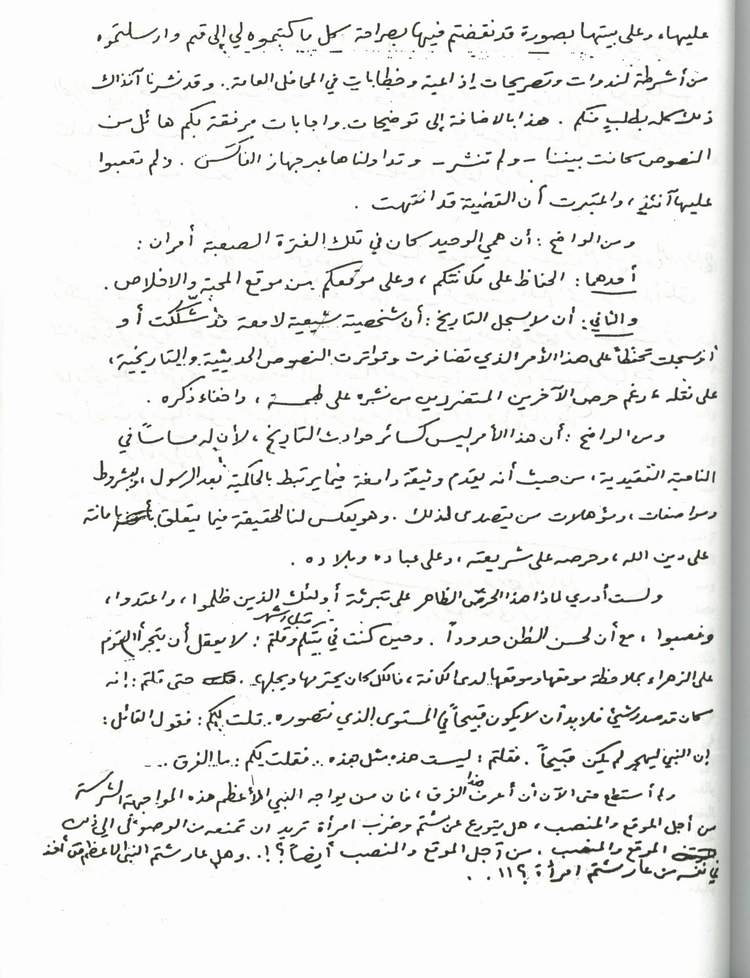 عليها، وعلى بيتها بصورة قد نقضتم فيها بصراحة كل ما كتبتموه لي إلى قم وارسلتموه
من أشرطة لندوات وتصريحات إذاعية وخطابات في المحافل العامة. وقد نشرنا آنذاك
ذلك كله بطلب منكم. هذا بالاضافة إلى توضيحات واجابات مرفقة بكم هائل من
النصوص كانت بيننا - ولم تنشر - وتداولناها عبر جهاز الفاكس. ولم تعقبوا
عليها آنئذٍ، واعتبرت أن القضية قد انتهت.
ومن الواضح: أن همي الوحيد كان في تلك الفترة الصعبة أمران:
أحدهما: الحفاظ على مكانتكم، وعلى موقعكم من موقع المحبة والاخلاص.
والثاني: أن لا يسجل التاريخ: أن شخصية شيعية لامعة قد شككت أو
أو سجلت تحفظاً على هذا الأمر الذي تضافرت وتواترت النصوص الحديثية والتاريخية،
على نقله، رغم حرص الآخرين المتضررين من نشره على طمسه، واخفاء ذكره.
ومن الواضح: أن هذا الأمر ليس كسائر حوادث التاريخ، لأن له مساساً في
الناحية العقيدية، من حيث أنه يقدم وثيقة دامغة فيما يرتبط بالحاكمية بعد الرسول، وبشروط
ومواصفات، ومؤهلات من يتصدى لذلك. وهو يعكس لنا الحقيقة فيما يتعلق بأمانته
على دين الله، وحرصه على شريعته، وعلى عباده وبلاده.
ولست أدري لماذا هذا الحرص الظاهر على تبرئة أولئك الذين ظلموا، واعتدوا،
وغصبوا، مع أن لحسن الظن حدوداً. وحين كنت في بيتكم قبل أشهر وقلتم: لا يعقل أن يتجرأ القوم
على الزهراء بملاحظة موقعها وموقعها لدى الكافة، فالكل كان يحترمها ويجلها. حتى قلتم: إنه
كان قد صدر شيء فلا بد أن لا يكون قبيحاً في المستوى الذي نتصوره. قلت لكم: فقول القائل:
إن النبي ليهجر لم يكن قبيحاً. فقلتم: ليست هذه مثل هذه.. فقلت لكم: ما الفرق...
ولم أستطع حتى الآن أن أعرف هذا الفرق، فان من يواجه النبي الأعظم هذه المواجهة الشرسة
من أجل الموقع والمنصب، هل يتورع عن شتم وضرب امرأة تريد ان تمنعه من الوصول الى ذلك
الموقع والمنصب. من أجل الموقع والمنصب أيضاً؟!.. وهل عار شتم النبي الاعظم أخف
في نفسه من عار شتم امرأة؟!!..